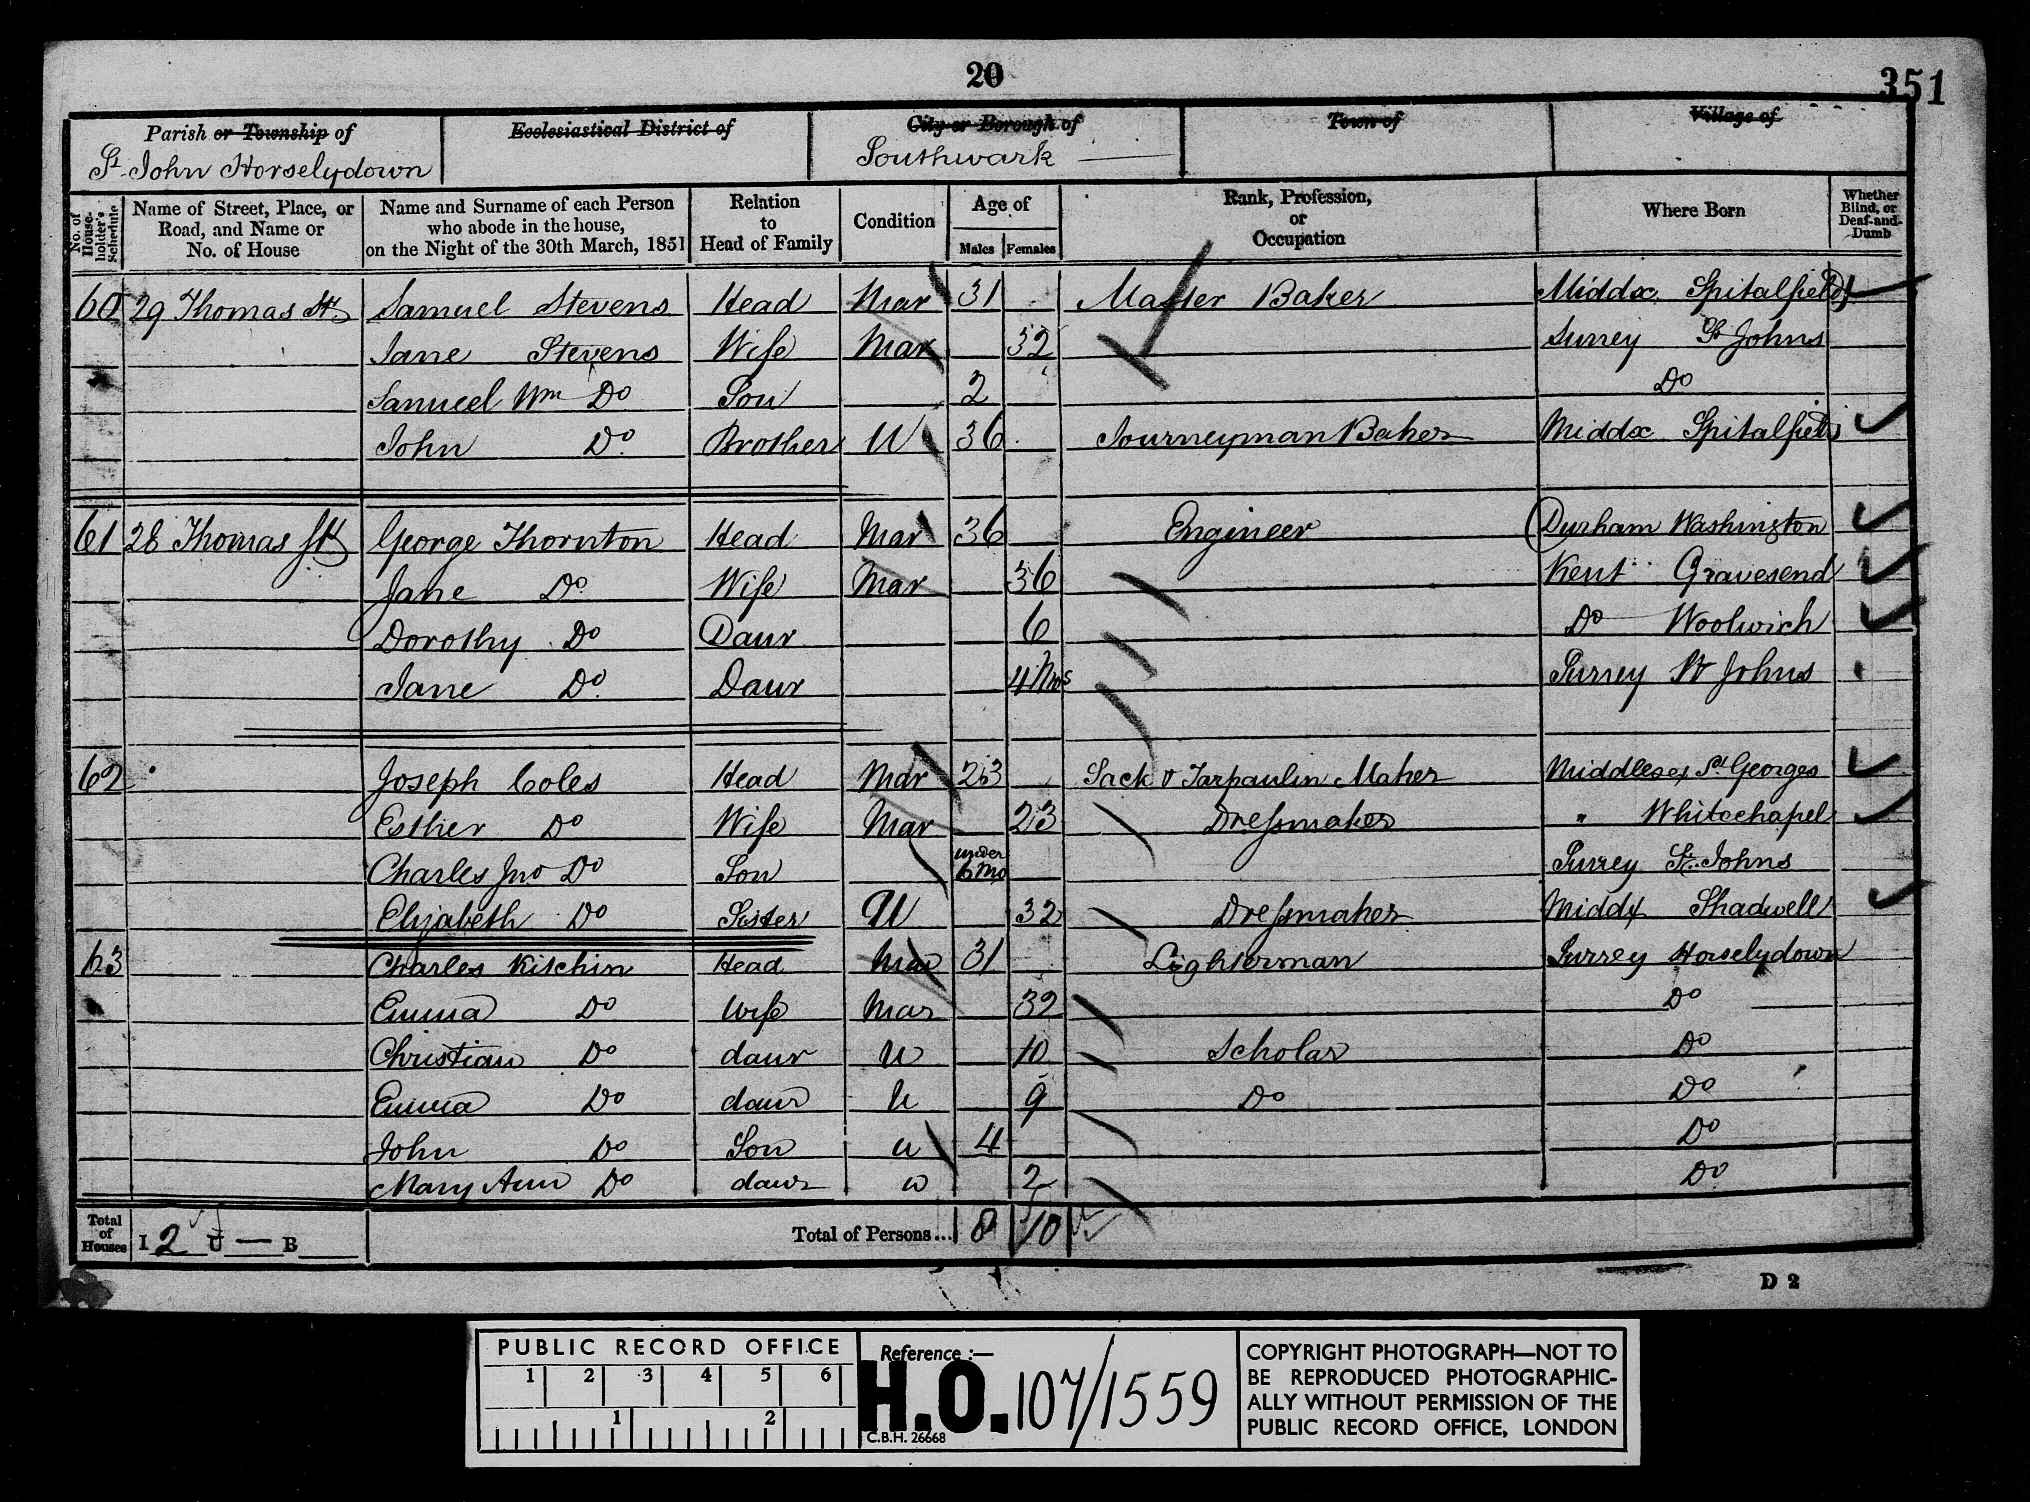 20
351
Parish or Township of
St. John Horselydown
Ecclesiastical District of
City or Borough of
Southwark
Town of
Village of
No. of House-holder's Schedule
Name of Street, Place, or Road, and Name or No. of House
Name and Surname of each Person who abode in the house, on the Night of the 30th March, 1851
Relation to Head of Family
Condition
Age of
Males Females
Rank, Profession, or Occupation
Where Born
Whether Blind, or Deaf-and-Dumb
60 29 Thomas St Samuel Stevens Head Mar 31 Master Baker Middx Spitalfields
Jane Stevens Wife Mar 32 Surrey St Johns
Samuel Wm Do Son 2 Do
John Do Brother U 36 Journeyman Baker Middx Spitalfields
61 28 Thomas St George Thornton Head Mar 36 Engineer Durham Washington
Jane Do Wife Mar 36 Kent Gravesend
Dorothy Do Daur 6 Do Woolwich
Jane Do Daur 4 Mos Surrey St Johns
62 Joseph Coles Head Mar 23 Sack & Tarpaulin Maker Middlesex St Georges
Esther Do Wife Mar 23 Dressmaker " Whitechapel
Charles Jno Do Son under 6 Mo Surrey St. Johns
Elizabeth Do Sister U 32 Dressmaker Middx Shadwell
63 Charles Kitchin Head Mar 31 Lighterman Surrey Horselydown
Emma Do Wife Mar 32 Do
Christian Do daur U 10 Scholar Do
Emma Do daur U 9 Do Do
John Do Son U 4 Do
Mary Ann Do daur U 2 Do
Total of Houses I 2 U — B Total of Persons... 8 10
D 2
PUBLIC RECORD OFFICE
1 2 3 4 5 6
1 2
Reference :—
H.O. 107/1559
C.B.H. 26668
COPYRIGHT PHOTOGRAPH—NOT TO
BE REPRODUCED PHOTOGRAPHIC-
ALLY WITHOUT PERMISSION OF THE
PUBLIC RECORD OFFICE, LONDON